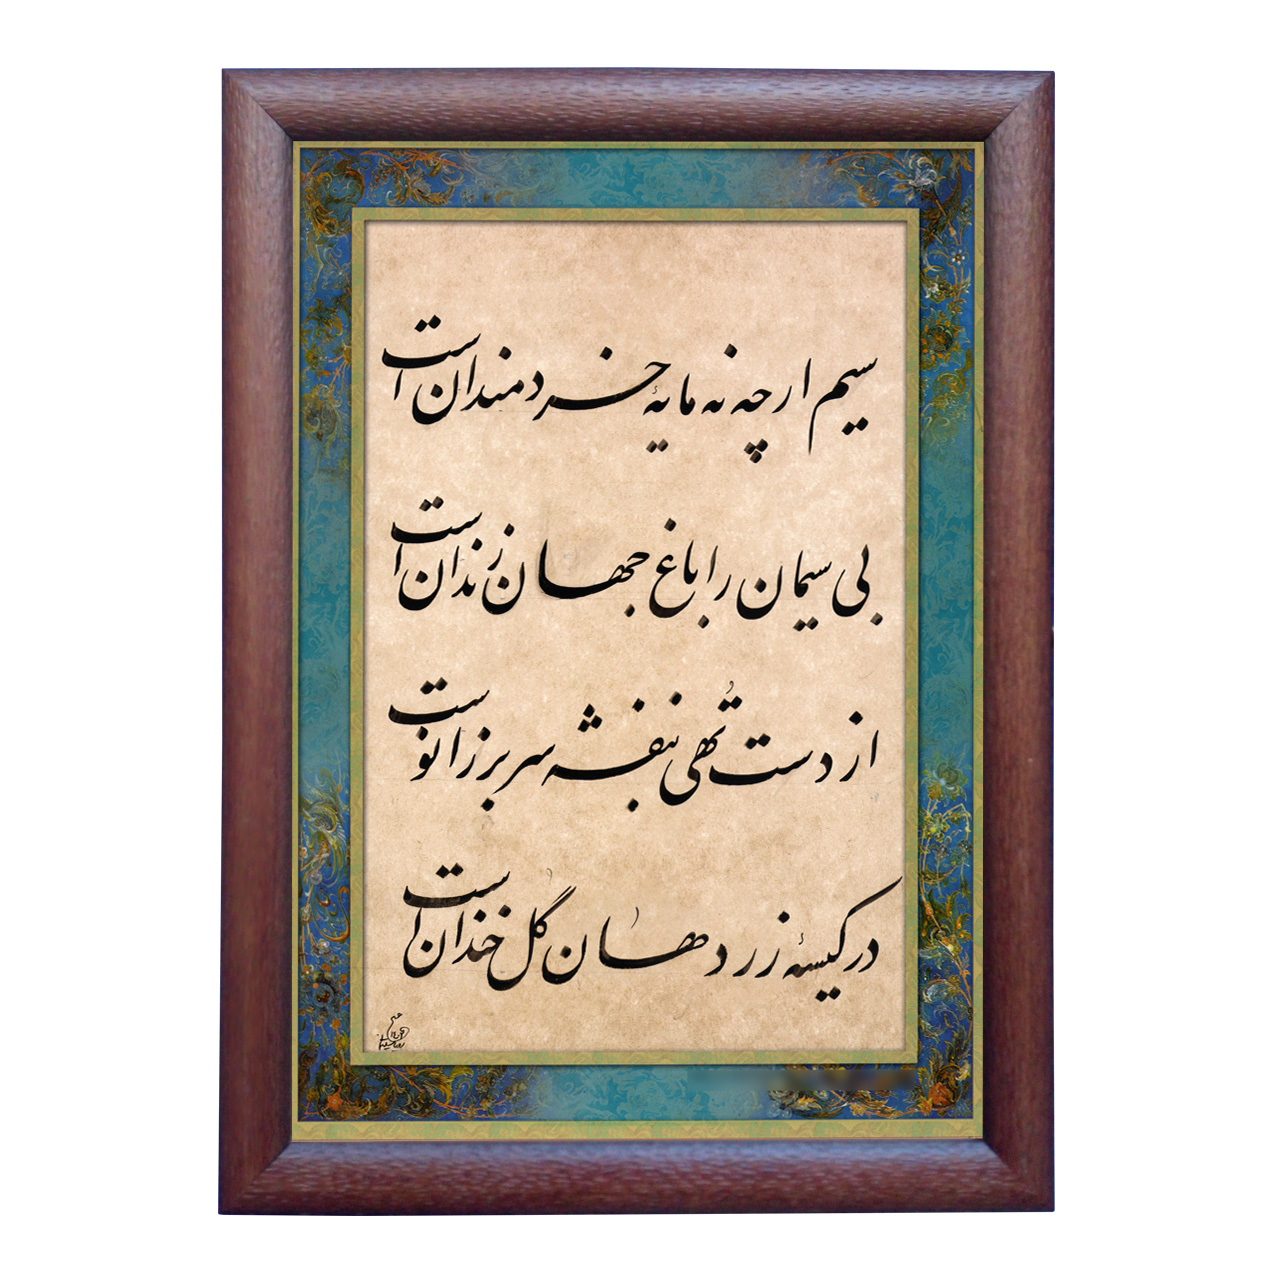 سیم ارچه نه مایهٔ خردمندان است
بی سیمان را باغ جهان زندان است
از دست تُهی بنفشه سر بر زانوست
در کیسهٔ زر دهان گل خندان است